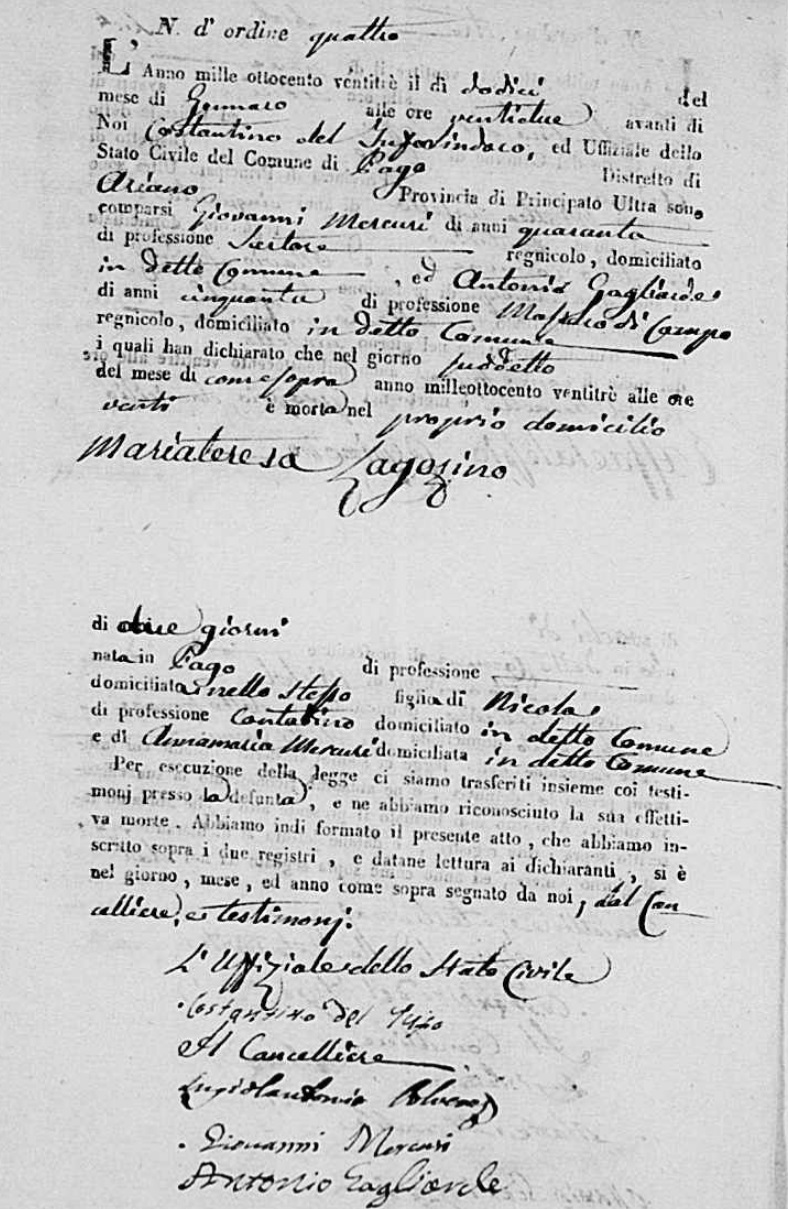 N. d' ordine quattro
L' Anno mille ottocento ventitrè il di dodici del
mese di Gennaro alle ore ventidue avanti di
Noi Costantino del Sindaco, ed Uffiziale dello
Stato Civile del Comune di Pago Distretto di
Ariano Provincia di Principato Ultra sono
comparsi Giovanni Mercuri di anni quaranta
di professione Sartore regnicolo, domiciliato
in detto Comune, ed Antonio Gagliarde
di anni cinquanta di professione Massaro di Campo
regnicolo, domiciliato in detto Comune
i quali han dichiarato che nel giorno suddetto
del mese di come sopra anno milleottocento ventitrè alle ore
venti è morta nel proprio domicilio
Mariateresa Lagozino
di due giorni
nata in Pago di professione
domiciliata nello stesso figlia di Nicola
di professione Contadino domiciliato in detto Comune
e di Annamaria Mercuri domiciliata in detto Comune
Per esecuzione della legge ci siamo trasferiti insieme coi testi-
monj presso la defunta, e ne abbiamo riconosciuto la sua effetti-
va morte. Abbiamo indi formato il presente atto, che abbiamo in-
scritto sopra i due registri, e datane lettura ai dichiaranti, si è
nel giorno, mese, ed anno come sopra segnato da noi, dal Can
celliere, e testimonj.
L'Uffiziale dello Stato Civile
Costantino del
Il Cancelliere
Giovanni Mercuri
Antonio Gagliarde